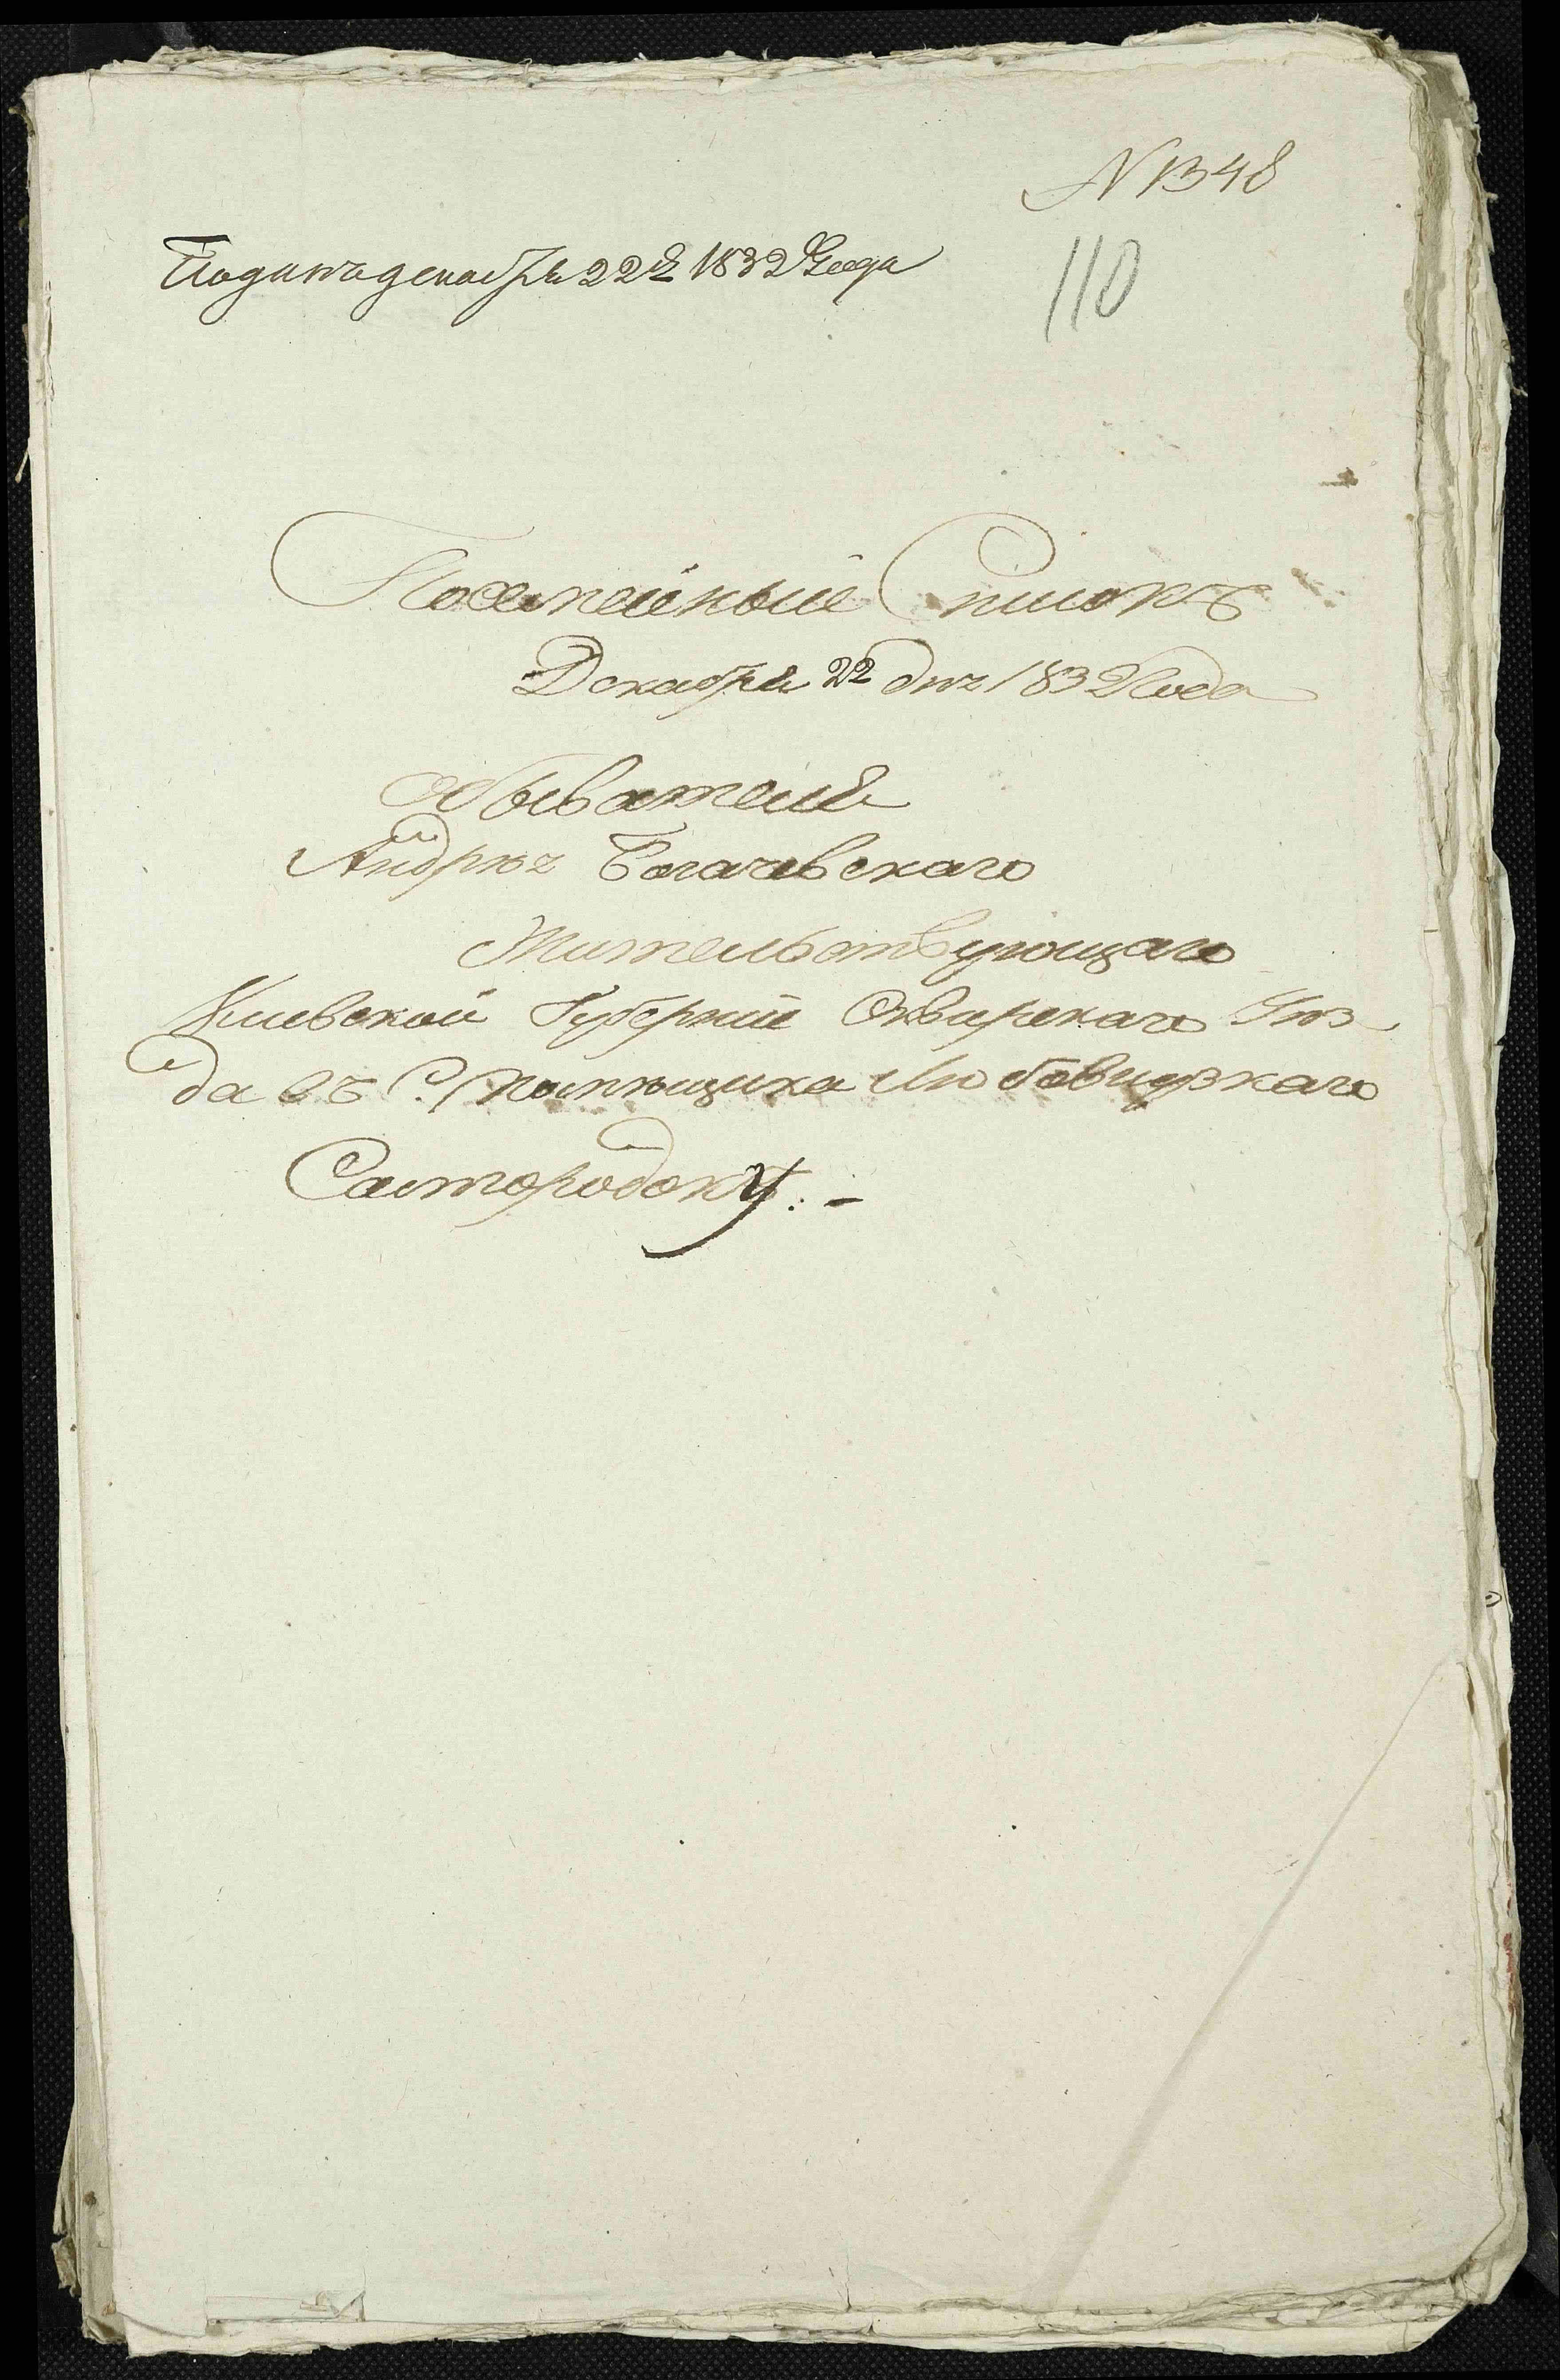 N 1348
Поданъ декабря 22г 1832 Года
110
Посемейный Списокъ
Декабря 22 дня 1832 Года
Обывателя
Андрея Богачевскаго
Жительствующаго
Киевской Губерніи Сквирскаго Уѣз
да въ С. Помѣщика Любовидзкаго
Самгородокѣ. –